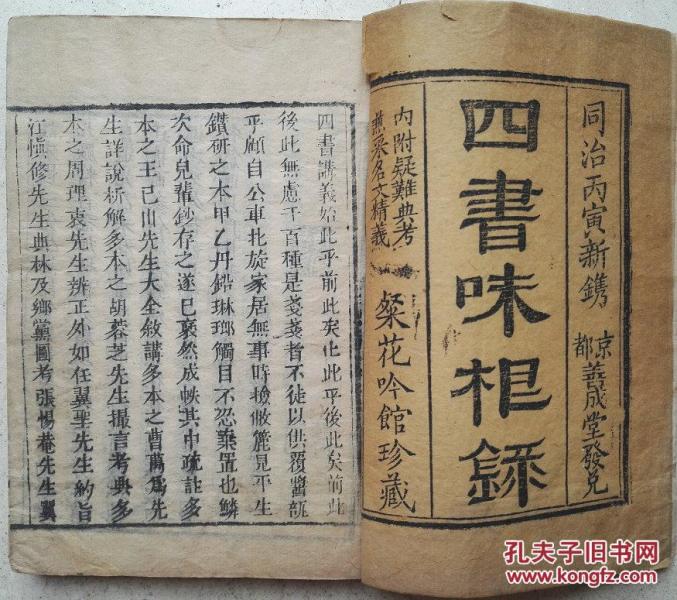 同治丙寅新鐫
京都善成堂發兌
四書味根錄
內附疑難典考
兼采名文精義
粲花吟館珍藏
四書講義始此乎前此矣止此乎後此矣前此
後此無慮千百種是戔戔者不徒以供覆醬瓿
乎顧自公車北旋家居無事時撿敝簏見平生
鑽研之本甲乙丹鉛琳瑯觸目不忍棄置也鱗
次命兒輩鈔存之遂已裒然成帙其中疏註多
本之王己山先生大全敘講多本之曹萬爲先
生詳說析解多本之胡蓉芝先生撮言考典多
本之周理衷先生辨正外如任翼聖先生約旨
江慎修先生典林及鄉黨圖考張惕菴先生翼
孔夫子旧书网
www.kongfz.com